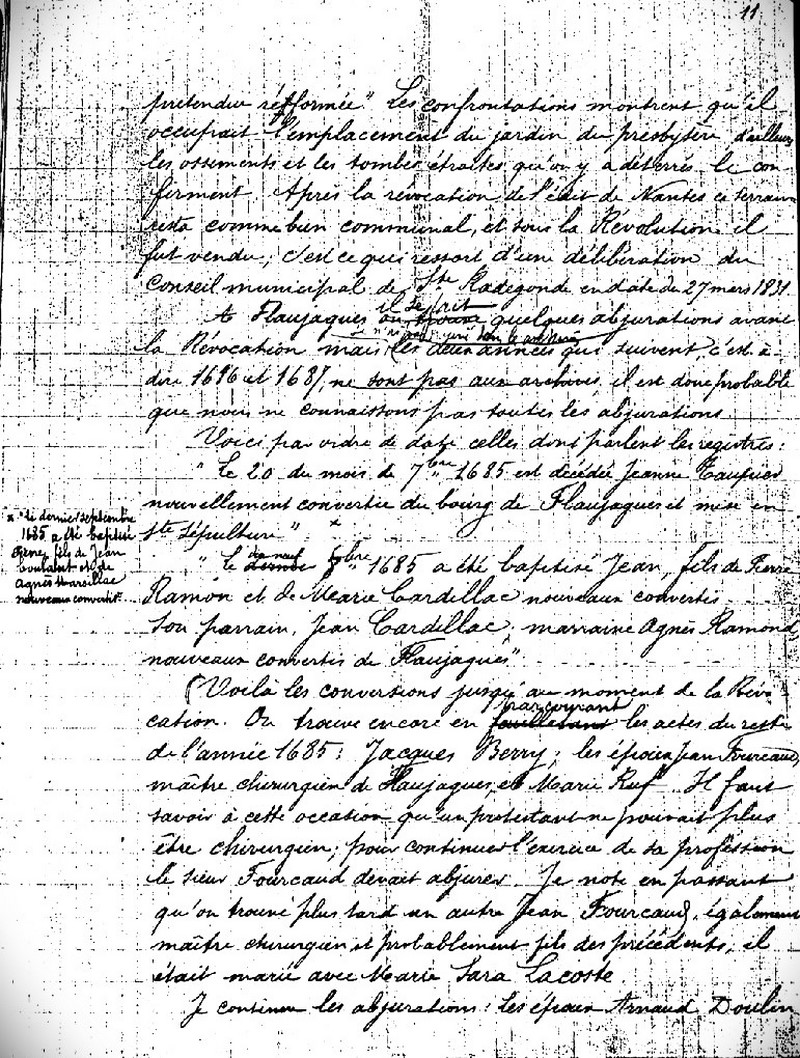 11
prétendue réfformée". Les confrontations montrent qu'il
occupait l'emplacement du jardin du presbytère d'ailleurs
les ossements et les tombes étroites qu'on y a déterrés le con-
ferment. Après la révocation de l'édit de Nantes ce terrain
resta comme bien communal, et sous la Révolution il
fut vendu; c'est ce qui ressort d'une délibération du
Conseil municipal de Ste Radegonde en date du 27 mars 1831.
il se fit
A Flaujagues on trouve quelques abjurations avant
la Révocation mais les deux années qui suivent c'est à
dire 1686 et 1687, ne sont pas aux archives, il est donc probable
que nous ne connaissons pas toutes les abjurations
Voici par ordre de date celles dont parlent les registres:
"Le 20 du mois de 7bre 1685 est décédée Jeanne
nouvellement convertie du bourg de Flaujagues et mise en
Ste Sépulture". x
x "Le dernier septembre
1685 a été baptisé
Pierre, fils de Jean
et de
Agnès Mareillac
nouveaux convertis".
"Le dernier 1685 a été baptisé Jean, fils de Pierre
Ramon et de Marie Cardillac nouveaux convertis
son parrain, Jean Cardillac, marraine Agnès Ramond,
nouveaux convertis de Flaujagues".
(Voilà les conversions jusqu'au moment de la Révo-
parcourant
cation. On trouve encore en feuilletant les actes du reste
de l'année 1685: Jacques Berry; les époux Jean Fourcaud,
maître chirurgien de Flaujagues, et Marie Ruf. Il faut
savoir à cette occasion qu'un protestant ne pouvait plus
être chirurgien; pour continuer l'exercice de sa profession
le sieur Fourcaud devait abjurer. Je note en passant
qu'on trouve plus tard un autre Jean Fourcaud, également
maître chirurgien, et probablement fils des précédents; il
était marié avec Marie Sara Lacoste
Je continue les abjurations: les époux Arnaud Doulin